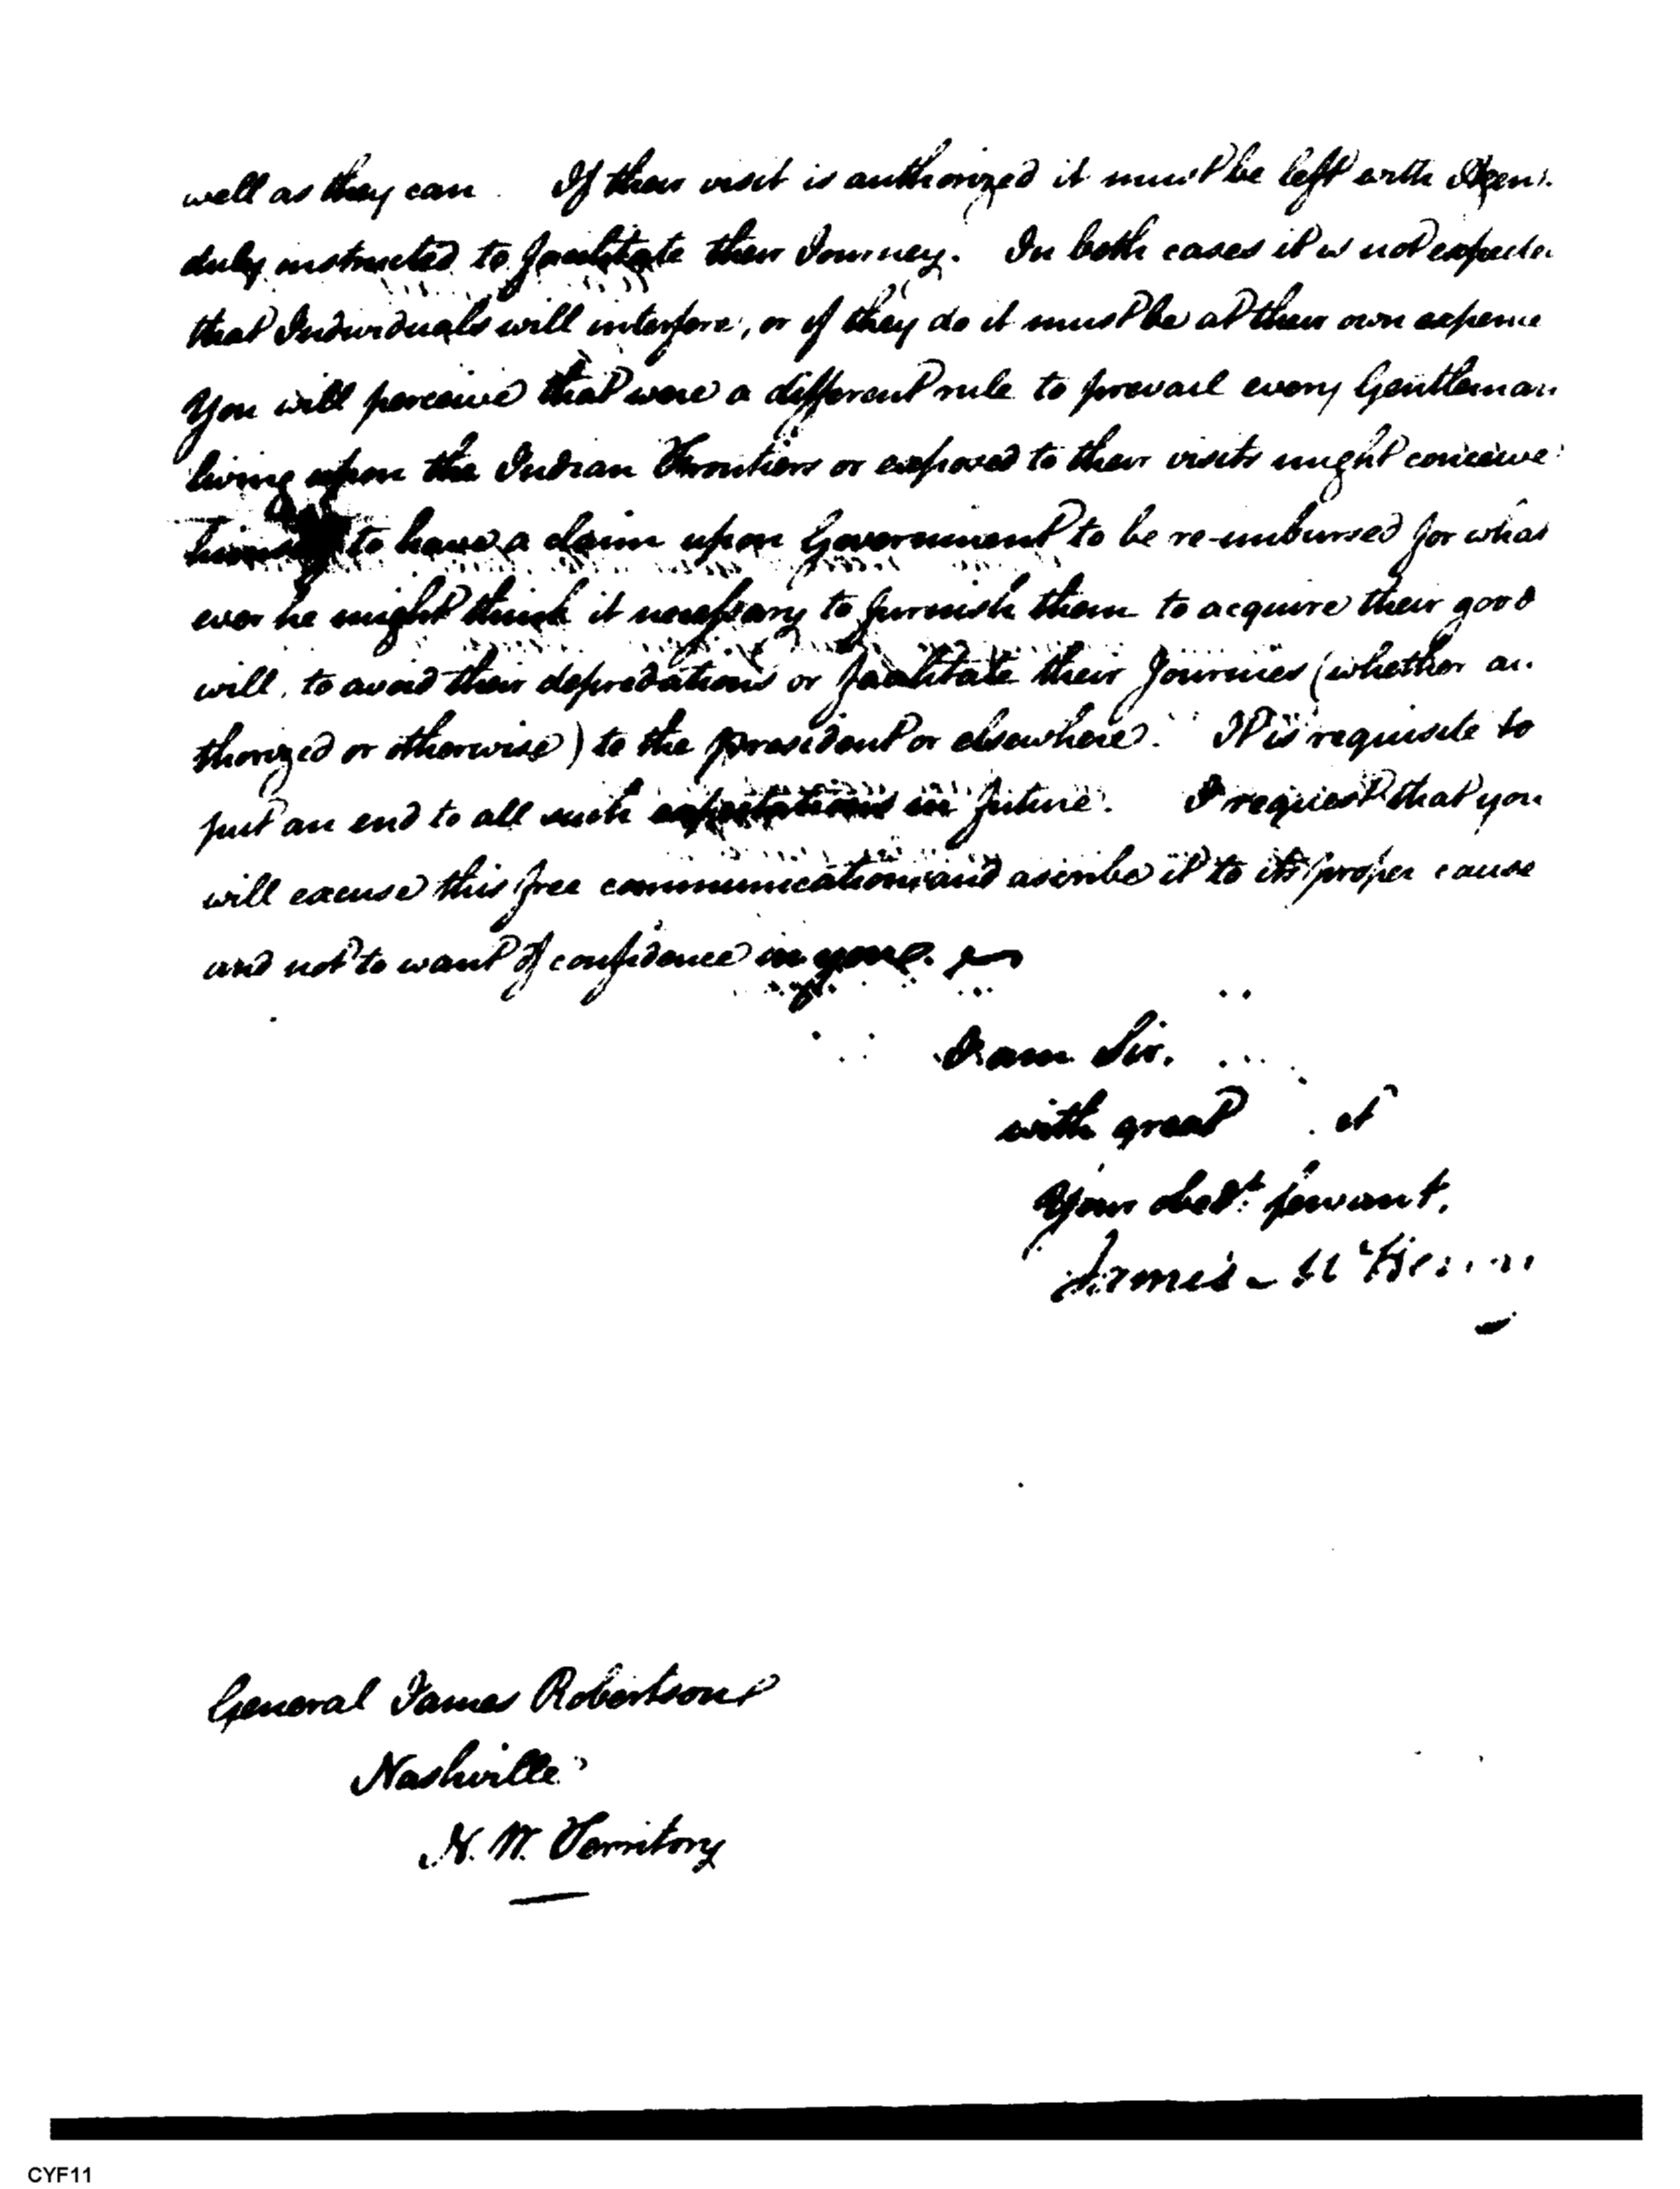 well as they can. If their visit is authorized it must be left with Agen
duly instructed to facilitate their Journey. In both cases it is not expecte
that Individuals will interfere, or if they do it must be at their own expence
You will perceive that were a different rule to prevail every Gentleman
living upon the Indian Frontiers or exposed to their visits might conceive
to have a claim upon Government to be re-imbursed for what
ever he might think it necessary to furnish them to acquire their good
will, to avoid their depredations or facilitate their Journies (whether au
thorized or otherwise) to the president or elsewhere. It is requisite to
put an end to all such expectations in future. I request that you
will excuse this free communication and ascribe it to its proper cause
and not to want of confidence in you.
I am Sir.
with great
Your obedt. servant,
James McHenry
General James Robertson
Nashville
N. W. Territory
CYF11